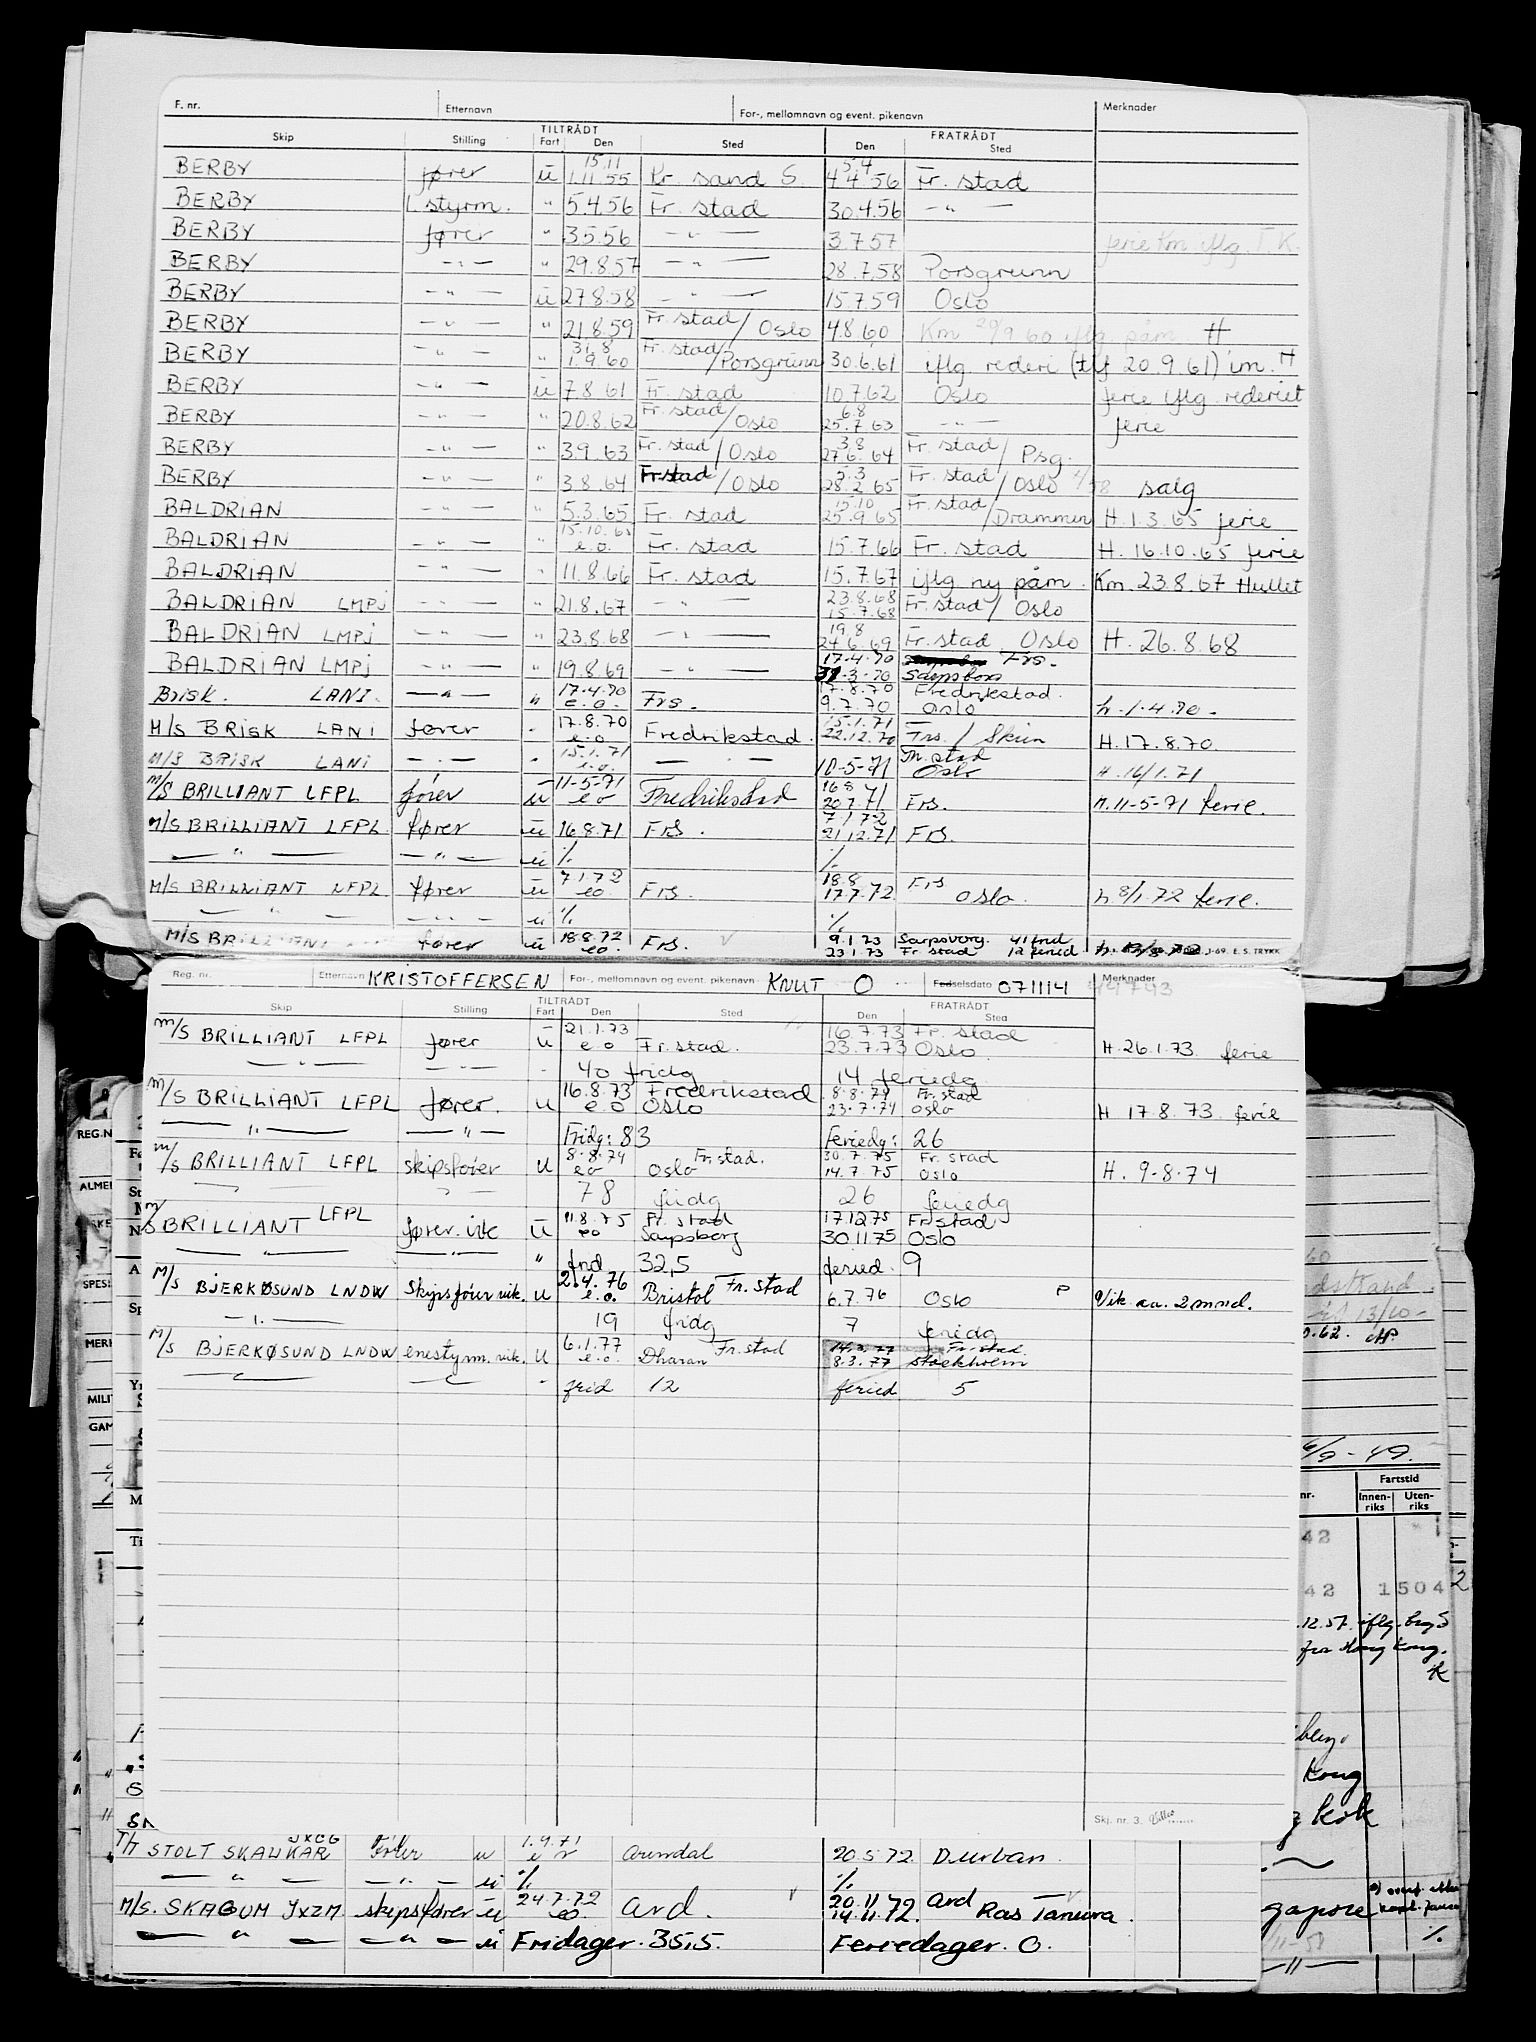 F. nr. Etternavn For-, mellomnavn og event. pikenavn Merknader
TILTRÅDT FRATRÅDT
Skip Stilling Fart Den Sted Den Sted
15.11 5.4
BERBY fører u 1.11.55 Kr. sand S. 4.4.56 Fr. stad
BERBY 1. styrm. " 5.4.56 Fr. stad 30.4.56 — " —
BERBY fører " 3.5.56 — " — 3.7.57 ferie Km iflg. T.K.
BERBY — " — " 29.8.57 — " — 28.7.58 Porsgrunn
BERBY — " — u 27.8.58 — " — 15.7.59 Oslo
BERBY — " — " 21.8.59 Fr. stad / Oslo 4.8.60 Km 20/9 60 iflg påm H
31.8
BERBY — " — " 1.9.60 Fr. stad / Porsgrunn 30.6.61 iflg. rederi (tlf 20.9.61) im. H
BERBY — " — u 7.8.61 Fr. stad 10.7.62 Oslo ferie iflg. rederiet
6.8
BERBY — " — " 20.8.62 Fr. stad / Oslo 25.7.63 — " — ferie
3.8
BERBY — " — " 3.9.63 Fr. stad / Oslo 27.6.64 Fr. stad / Psg.
5.3
BERBY — " — " 3.8.64 Fr. stad / Oslo 28.2.65 Fr. stad / Oslo salg
15.10
BALDRIAN — " — " 5.3.65 Fr. stad 25.9.65 Fr. stad / Drammen H. 1.3.65 ferie
15.10.65
BALDRIAN — " — " e.o. Fr. stad 15.7.66 Fr. stad H. 16.10.65 ferie
BALDRIAN — " — " 11.8.66 Fr. stad 15.7.67 iflg ny påm. Km. 23.8.67 Hullet
23.8.68
BALDRIAN LMPJ — " — " 21.8.67 — " — 15.7.68 Fr. stad / Oslo
19.8
BALDRIAN LMPJ — " — " 23.8.68 — " — 24.6.69 Fr. stad Oslo H. 26.8.68
17.4.70 Frs.
BALDRIAN LMPJ — " — " 19.8.69 — " — 31.3.70 Sarpsborg
17.4.70 17.8.70 Fredrikstad.
BRISK. LANI. — " — " e.o. Frs. 9.7.70 Oslo h. 1.4.70.
17.8.70 15.1.71
M/S BRISK LANI fører " e.o Fredrikstad. 22.12.70 Frs. / Skien H. 17.8.70
15.1.71 Fr. stad
M/S BRISK LANI — " — " e.o. — " — 10-5-71 Oslo H. 16/1.71
11-5-71 16.8
M/S BRILLIANT LFPL fører u e o Fredrikstad 20.7.71 Frs. H. 11-5-71 ferie.
7.1.72
M/S BRILLIANT LFPL fører u 16.8.71 FrS. 21.12.71 FrS.
— " — — " — u ./. ./.
7.1.72 18.8 FrS
M/S BRILLIANT LFPL fører u eo. FrS. 17.7.72 Oslo. h. 8/1.72 ferie.
— " — — " — u ./. ./.
18.8.72 9.1.73 Sarpsborg. 41 frid
M/S BRILLIANT fører u eo. FrS. 23.1.73 Fr. stad 12 feried J-69. E.S. TRYKK
Reg. nr. Etternavn KRISTOFFERSEN For-, mellomnavn og event. pikenavn KNUT O Fødselsdato 071114 Merknader 44793
TILTRÅDT FRATRÅDT
Skip Stilling Fart Den Sted Den Sted
21.1.73 16.7.73 Fr. stad
M/S BRILLIANT LFPL fører u e.o Fr. stad. 23.7.73 Oslo. H. 26.1.73. ferie
— " — — " — " 40 fridg 14 feriedg
16.8.73 Fredrikstad 8.8.74 Fr. stad
M/S BRILLIANT LFPL fører. u e.o Oslo 23.7.74 Oslo H 17.8.73. ferie
— " — — " — Fridg: 83 Feriedg: 26
8.8.74 Fr. stad. 30.7.75 Fr. stad
M/S BRILLIANT LFPL skipsfører u eo Oslo 14.7.75 Oslo H. 9-8-74
— " — — " — 78 fridg 26 feriedg
11.8.75 Fr. stad 17.12.75 Fr.stad
M/S BRILLIANT LFPL fører. vik u eo Sarpsborg 30.11.75 Oslo
— " — — " — " frid 32,5 feried. 9
2.4.76 Fr. stad
M/S BJERKØSUND LNDW Skipsfører vik. u e.o. Bristol 6.7.76 Oslo P Vik ca. 2 mnd.
— " — 19 fridg 7 feridg
6.1.77 Fr. stad 14.3.77 Fr. stad.
M/S BJERKØSUND LNDW enestyrm. vik. u e.o. Dharan 8.3.77 Stockholm
— " — — " — " frid 12 feried 5
Skj. nr. 3.
REG.N
ALMEN
SPESI
MERI
MILIT
GAM
60
dstrand
13/10-
0.62.
6/9 - 49.
Fartstid
nr. Innenriks Utenriks
42
42 1504
.12.57. iflg. brg S
fra Hong Kong.
K
Kong
T/T STOLT SKAUKAR JXCG Fører u 1.9.71 Arendal 20.5.72. Durban.
— " — — " — u ./. ./.
24.7.72 20.11.72 Ard
M/S. SKAGUM JXZM skipsfører u eo. Ard. 14.11.72. Ras Tanura. gapore
— " — — " — u Fridager. 35,5. Feriedager. 0.